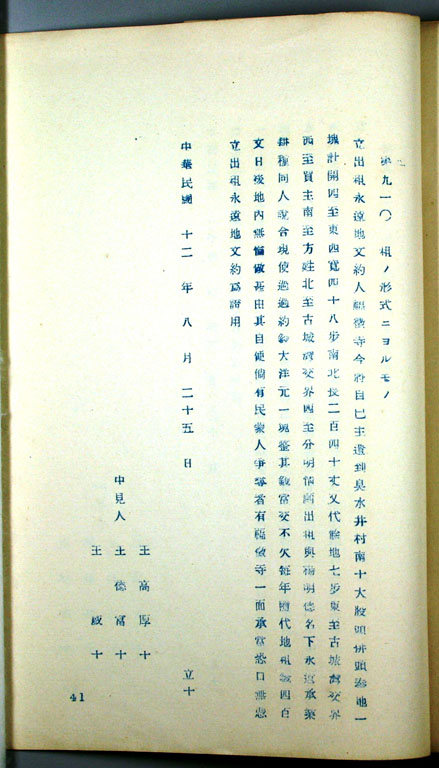 九一〇 租ノ形式ニヨルモノ
立出租永遠地文約人福徵寺今將自己主遺到臭水井村南十大股頭併頭渰地一
塊計開四至東西寬四十八步南北長二百四十丈又代餘地七步東至古城灣交界
西至買主南至方姓北至古城灣交界四至分明情願出租與楊明德名下永遠承業
耕種同人說合現使過過約錢大洋元一塊整其錢當交不欠每年隨代地租城四百
文日後地內無論做甚由其自便倘有民蒙人爭奪者有福徵寺一面承當恐口無憑
立出租永遠地文約爲證用
中華民國 十二 年 八 月 二十五 日
立十
中見人
王高厚十
王德富十
王威十
41